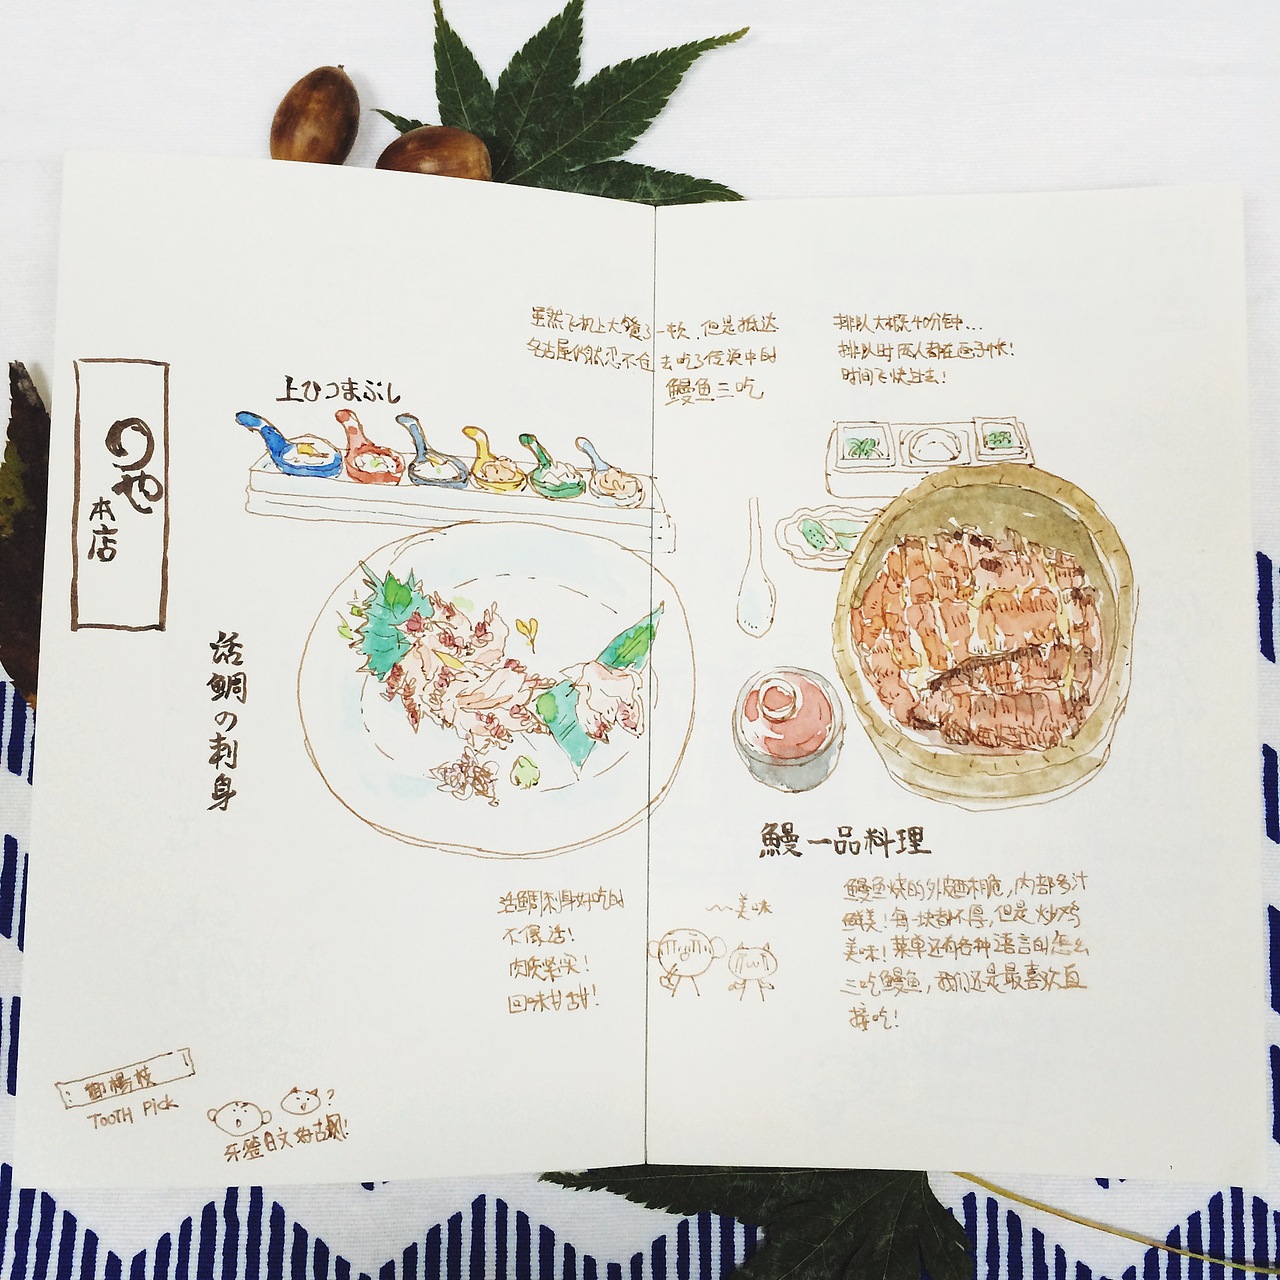 虽然飞机上大餐了一顿,但是抵达
名古屋仍然忍不住去吃了传说中的
鳗鱼三吃
排队大概40分钟...
排队时两人都在画手帐!
时间飞快过去!
上ひつまぶし
のや
本店
活鯛の刺身
鰻一品料理
活鲷刺身好吃的
不像话!
肉质紧实!
回味甘甜!
~~美味
鳗鱼烧的外面相脆,内部多汁
鲜美!每一块都不厚,但是炒鸡
美味!菜单还有各种语言的怎么
三吃鳗鱼,我们还是最喜欢直
接吃!
御楊枝
TOOTH PICK
?
牙签日文好古风!